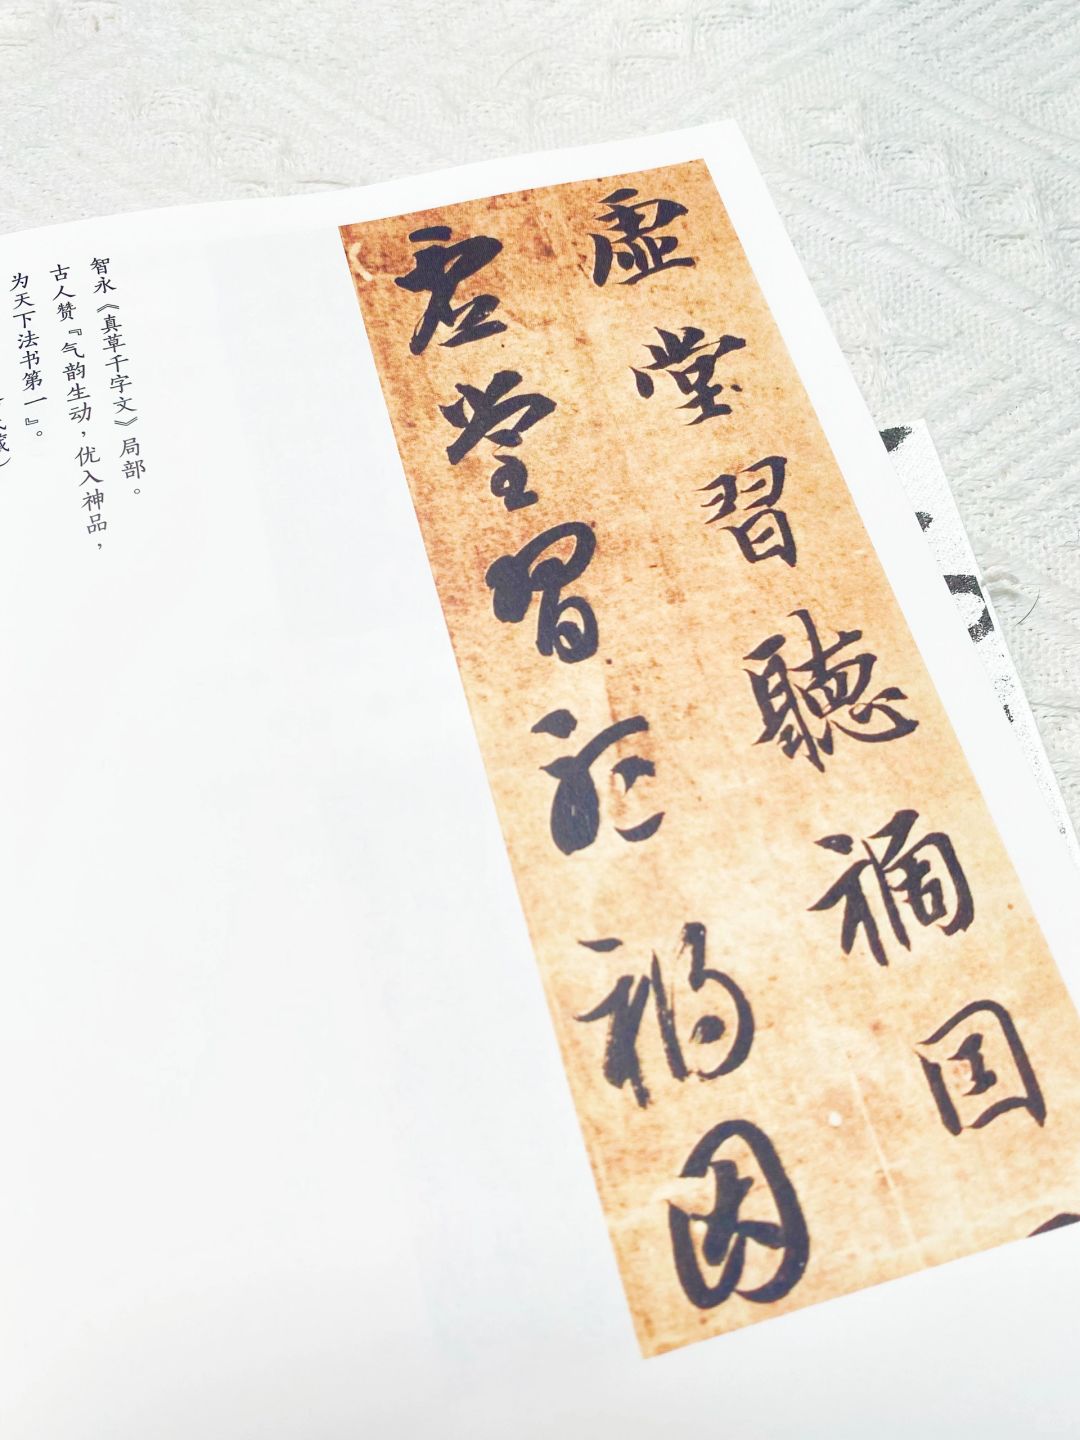 虚堂習聽禍因
虚堂習聽禍因
智永《真草千字文》局部。
古人赞『气韵生动，优入神品，
为天下法书第一』。
藏）